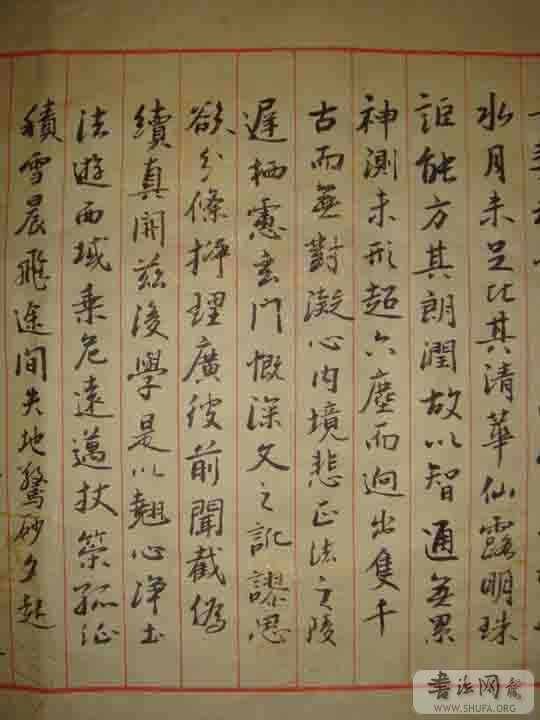 水月未足比其清華仙露明珠
詎能方其朗潤故以智通無累
神測未形超六塵而迥出隻千
古而無對凝心內境悲正法之陵
遲栖慮玄門慨深文之訛謬思
欲分條析理廣彼前聞截偽
續真開茲後學是以翹心淨土
法遊西域乘危遠邁杖策孤征
積雪晨飛途間失地驚砂夕起
書法网
WWW.SHUFA.ORG